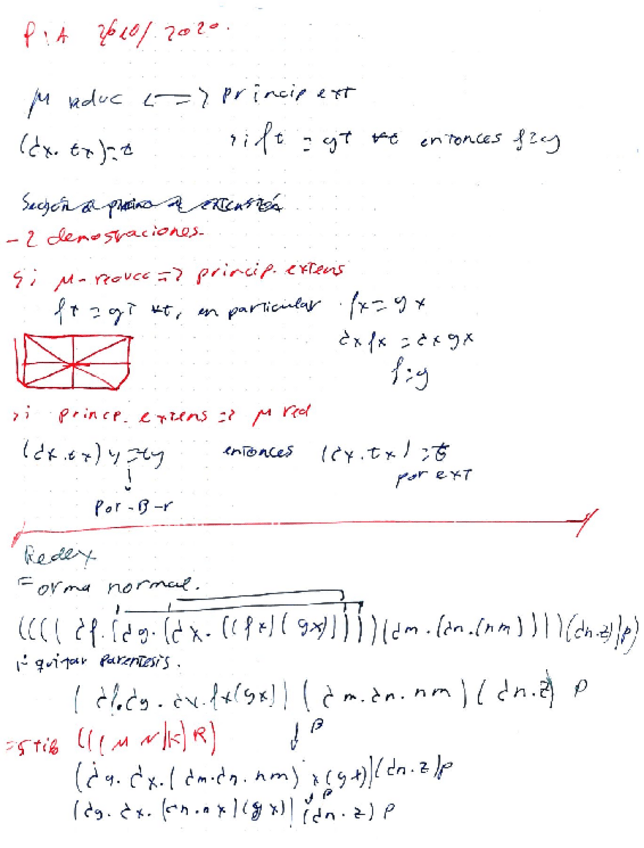 P:A 26/10/2020.
μ reduc <=> princip ext
(λx. tx)=t si ft = gt ∀t entonces f=g
- 2 demostraciones.
si μ-reducc => princip. extens
ft = gt ∀t, en particular fx = gx
λx fx = λx gx
f=g
si princp. extens => μ red
(λx.tx) y = ty entonces (λx.tx) = t
por ext
Por-B-r
Redex
Forma normal.
((((λf.(λg.(λx.((fx)(gx)))))(λm.(λn.(nm))))(λn.z))p)
1º quitar parentesis.
(λf.λg.λx.fx(gx)) (λm.λn.nm) (λn.z) p
(((M N)K)R) ↓β
(λg.λx.(λm.λn.nm) x(gx)) (λn.z)p
↓β
(λg.λx.(λn.nx)(gx)) (λn.z) p